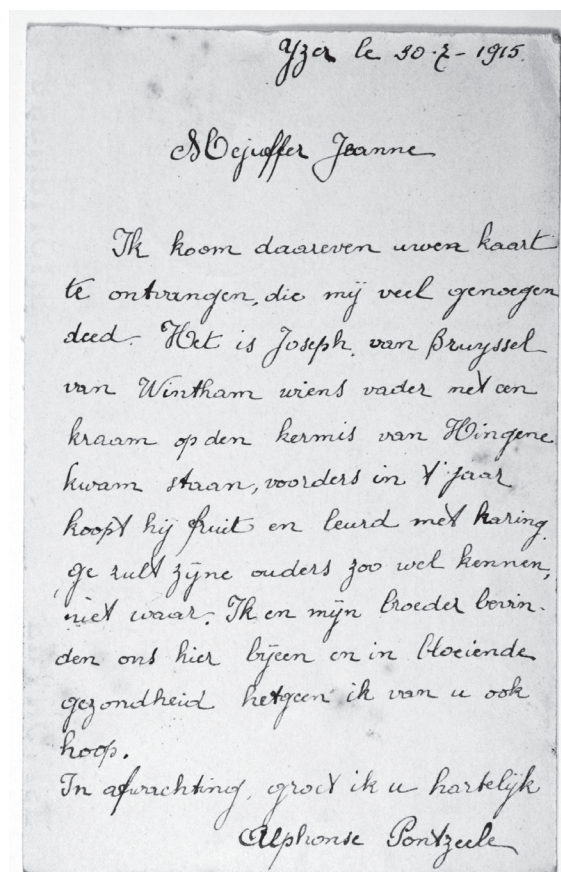 Yzer le 30-7-1915.
Mejuffer Jeanne
Ik koom daareven uwen kaart
te ontvangen, die mij veel genoegen
deed. Het is Joseph van Bruyssel
van Wintham wiens vader met een
kraam op den kermis van Hingene
kwam staan, voorders in 't jaar
koopt hij fruit en leurd met haring.
ge zult zijne ouders zoo wel kennen,
niet waar. Ik en mijn broeder bevin-
den ons hier bijeen en in bloeiende
gezondheid hetgeen ik van u ook
hoop.
In afwachting, groet ik u hartelijk
Alphonse Pontzeele